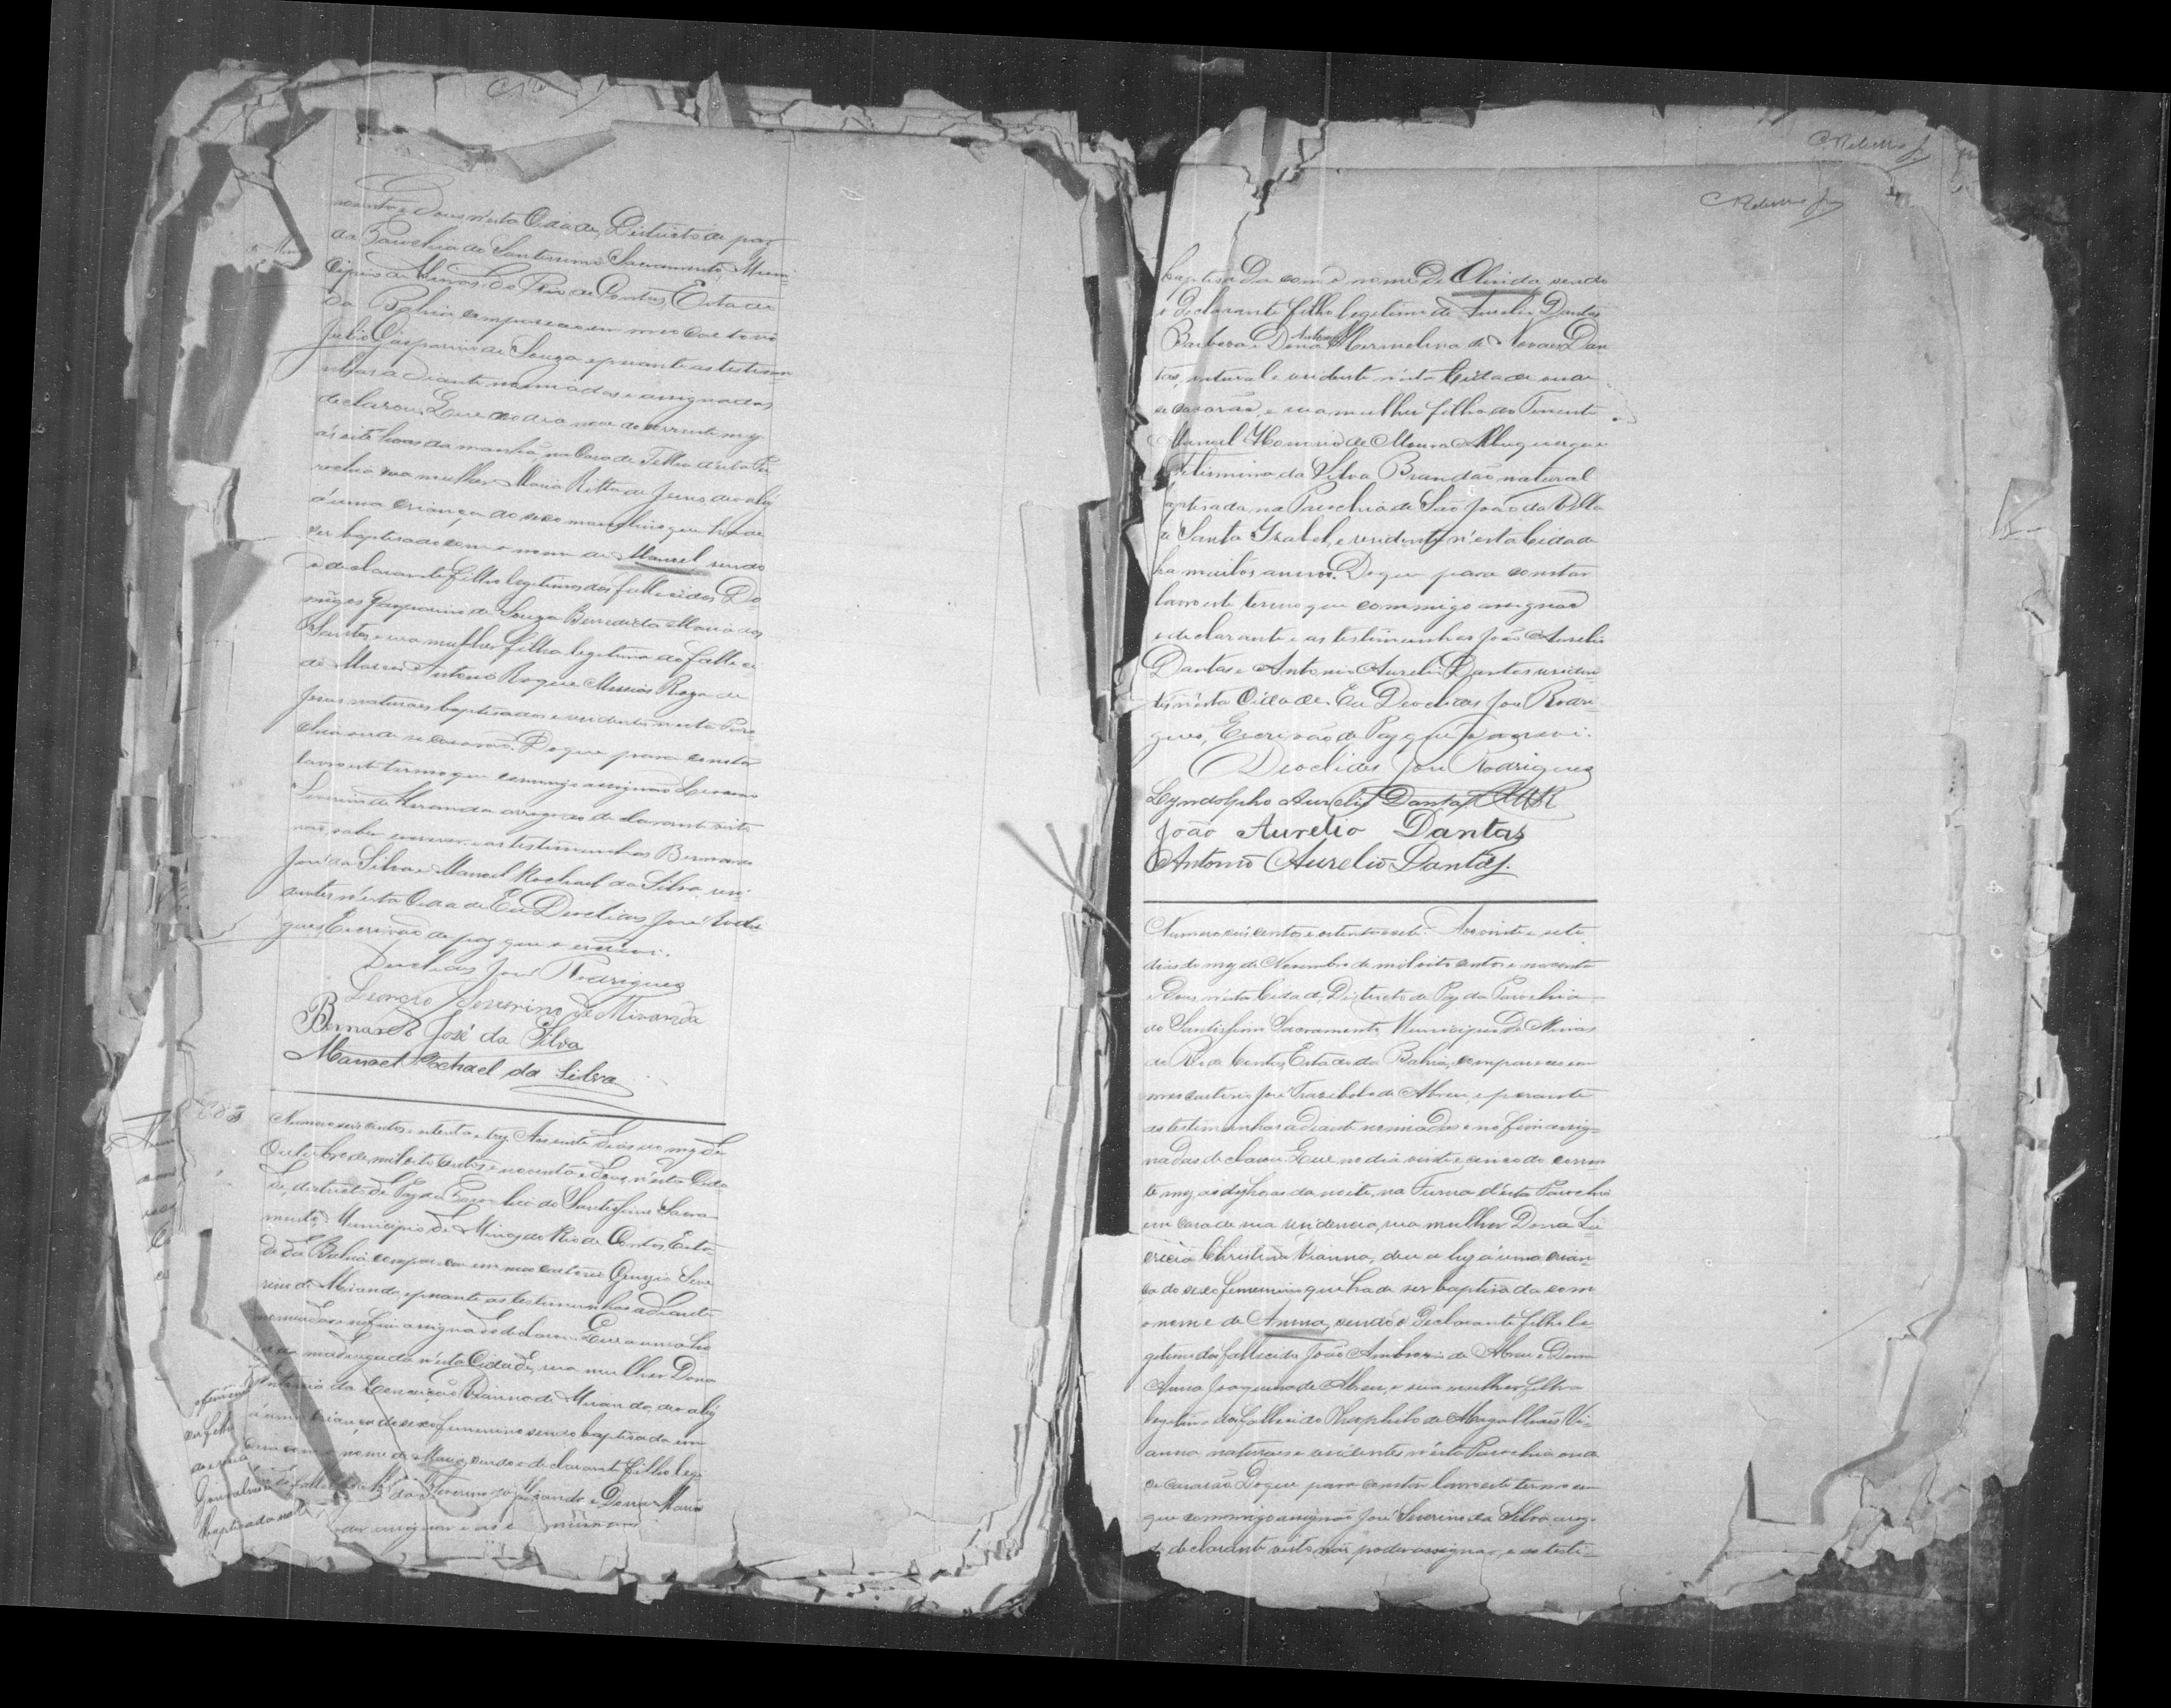 noventa e Dous n'esta Cidade, Districto de paz
da Parochia do Santissimo Sacramento, Muni-
cipio de Minas do Rio de Contas, Estado
da Bahia, compareceu em meo Cartorio
Julio Gasparino de Souza e perante as testemu-
nhas a diante nomiadas e assignadas
declarou: Que no dia nove do corrente mez
ás oito horas da manhã, na Casa de Telha d'esta Pa-
rochia sua mulher Maria Ritta de Jesus, deo a luz
á uma criança do sexo masculino que ha de
ser baptisado com o nome de Manoel sendo
o declarante filho legitimo dos fallecidos Do-
mingos Gasparino de Souza Benedicta Maria dos
Santos e sua mulher filha legitima do falleci-
do Antonio Roque Messias Roza de
Jesus naturaes baptisados e residentes n'esta Paro-
chia onde se casarão. Do que para constar
lavro este termo que commigo assignão Leoncio
Severino de Miranda a rogo do declarante visto
não saber escrever e as testemunhas Bernardo
José da Silva e Manoel Rachael da Silva resi-
dentes n'esta Cidade Eu Deoclides José Rodri-
gues, Escrivão de paz que o escrevi.
Deoclides José Rodrigues
Leoncio Severino de Miranda
Bernardo José da Silva
Manoel Rachael da Silva
683
Numero seis centos e oitenta e trez. Aos vinte dias do mez de
Outubro de mil oito centos e noventa e dous, n'esta Cida-
de, districto de Paz da Parochia do Santissimo Sacra-
mento, Municipio de Minas do Rio de Contas, Esta-
do da Bahia compareceu em meo cartorio Seve-
rino de Miranda, e perante as testemunhas a diante
nomiadas e no fim assignadas declarou: Que a uma ho-
ra da madrugada n'esta Cidade, sua mulher Dona
da Conceição Vianna de Miranda, deo a luz
á uma criança do sexo femenino sendo baptisada em
com o nome de Maria, sendo o declarante filho legi-
Severino de Miranda e Dona Maria
assignar e as
ser filho
Gonsalves
baptisado na
baptisada com o nome de Olinda, sendo
o declarante filho legitimo de Aurelio Dantas
Barbosa e Dona Hermelina de Novaes Dan
tas, natural e residente n'esta Cidade onde
se casarão, e sua mulher filha do Tenente
Manoel Honorio de Moura Albuquerque
da Silva Brandão natural
baptisada na Parochia de São João da Villa
de Santa Izabel, e residente n'esta Cidade
ha muitos annos. Do que para constar
lavro este termo que commigo assignão
o declarante e as testemunhas João Aurelio
Dantas e Antonio Aurelio Dantas residen-
tes n'esta Cidade. Eu Deoclides José Rodri-
gues, Escrivão de Paz que o escrevi.
Deoclides José Rodrigues
Lyndolpho Aurelio Dantas
João Aurelio Dantas
Antonio Aurelio Dantas.
Numero seis centos e oitenta e sete. Aos vinte e sete
dias do mez de Novembro de mil oito centos e noventa
e Dous n'esta Cidade, Districto de Paz da Parochia
do Santissimo Sacramento, Municipio de Minas
do Rio de Contas, Estado da Bahia, compareceu em
meo cartorio José Trazibulo de Abreu, e perante
as testemunhas a diante nomiadas e no fim assig-
nadas declarou: Que no dia vinte e cinco do corren
te mez, as dez horas da noite, na Furna d'esta Parochia
em casa de sua residencia, sua mulher Dona Lu-
crecia Christina Vianna, deu a luz á uma crian-
ça do sexo femenino que ha de ser baptisada com
o nome de Anna, sendo o Declarante filho le-
gitimo do fallecido João Ambrozio de Abreu e Dona
Anna Joaquina de Abreu, e sua mulher filha
legitima do fallecido Theophilo de Magalhães Vi-
anna naturaes e residentes n'esta Parochia onde
se casarão. Do que para constar lavro este termo em
que commigo assignão José Severino da Silva a rogo
do declarante visto não poder assignar, e as teste-